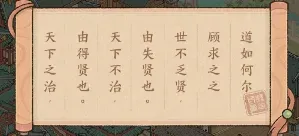 天下之治，
由得贤也。
天下不治，
由失贤也。
世不乏贤，
顾求之之
道如何尔